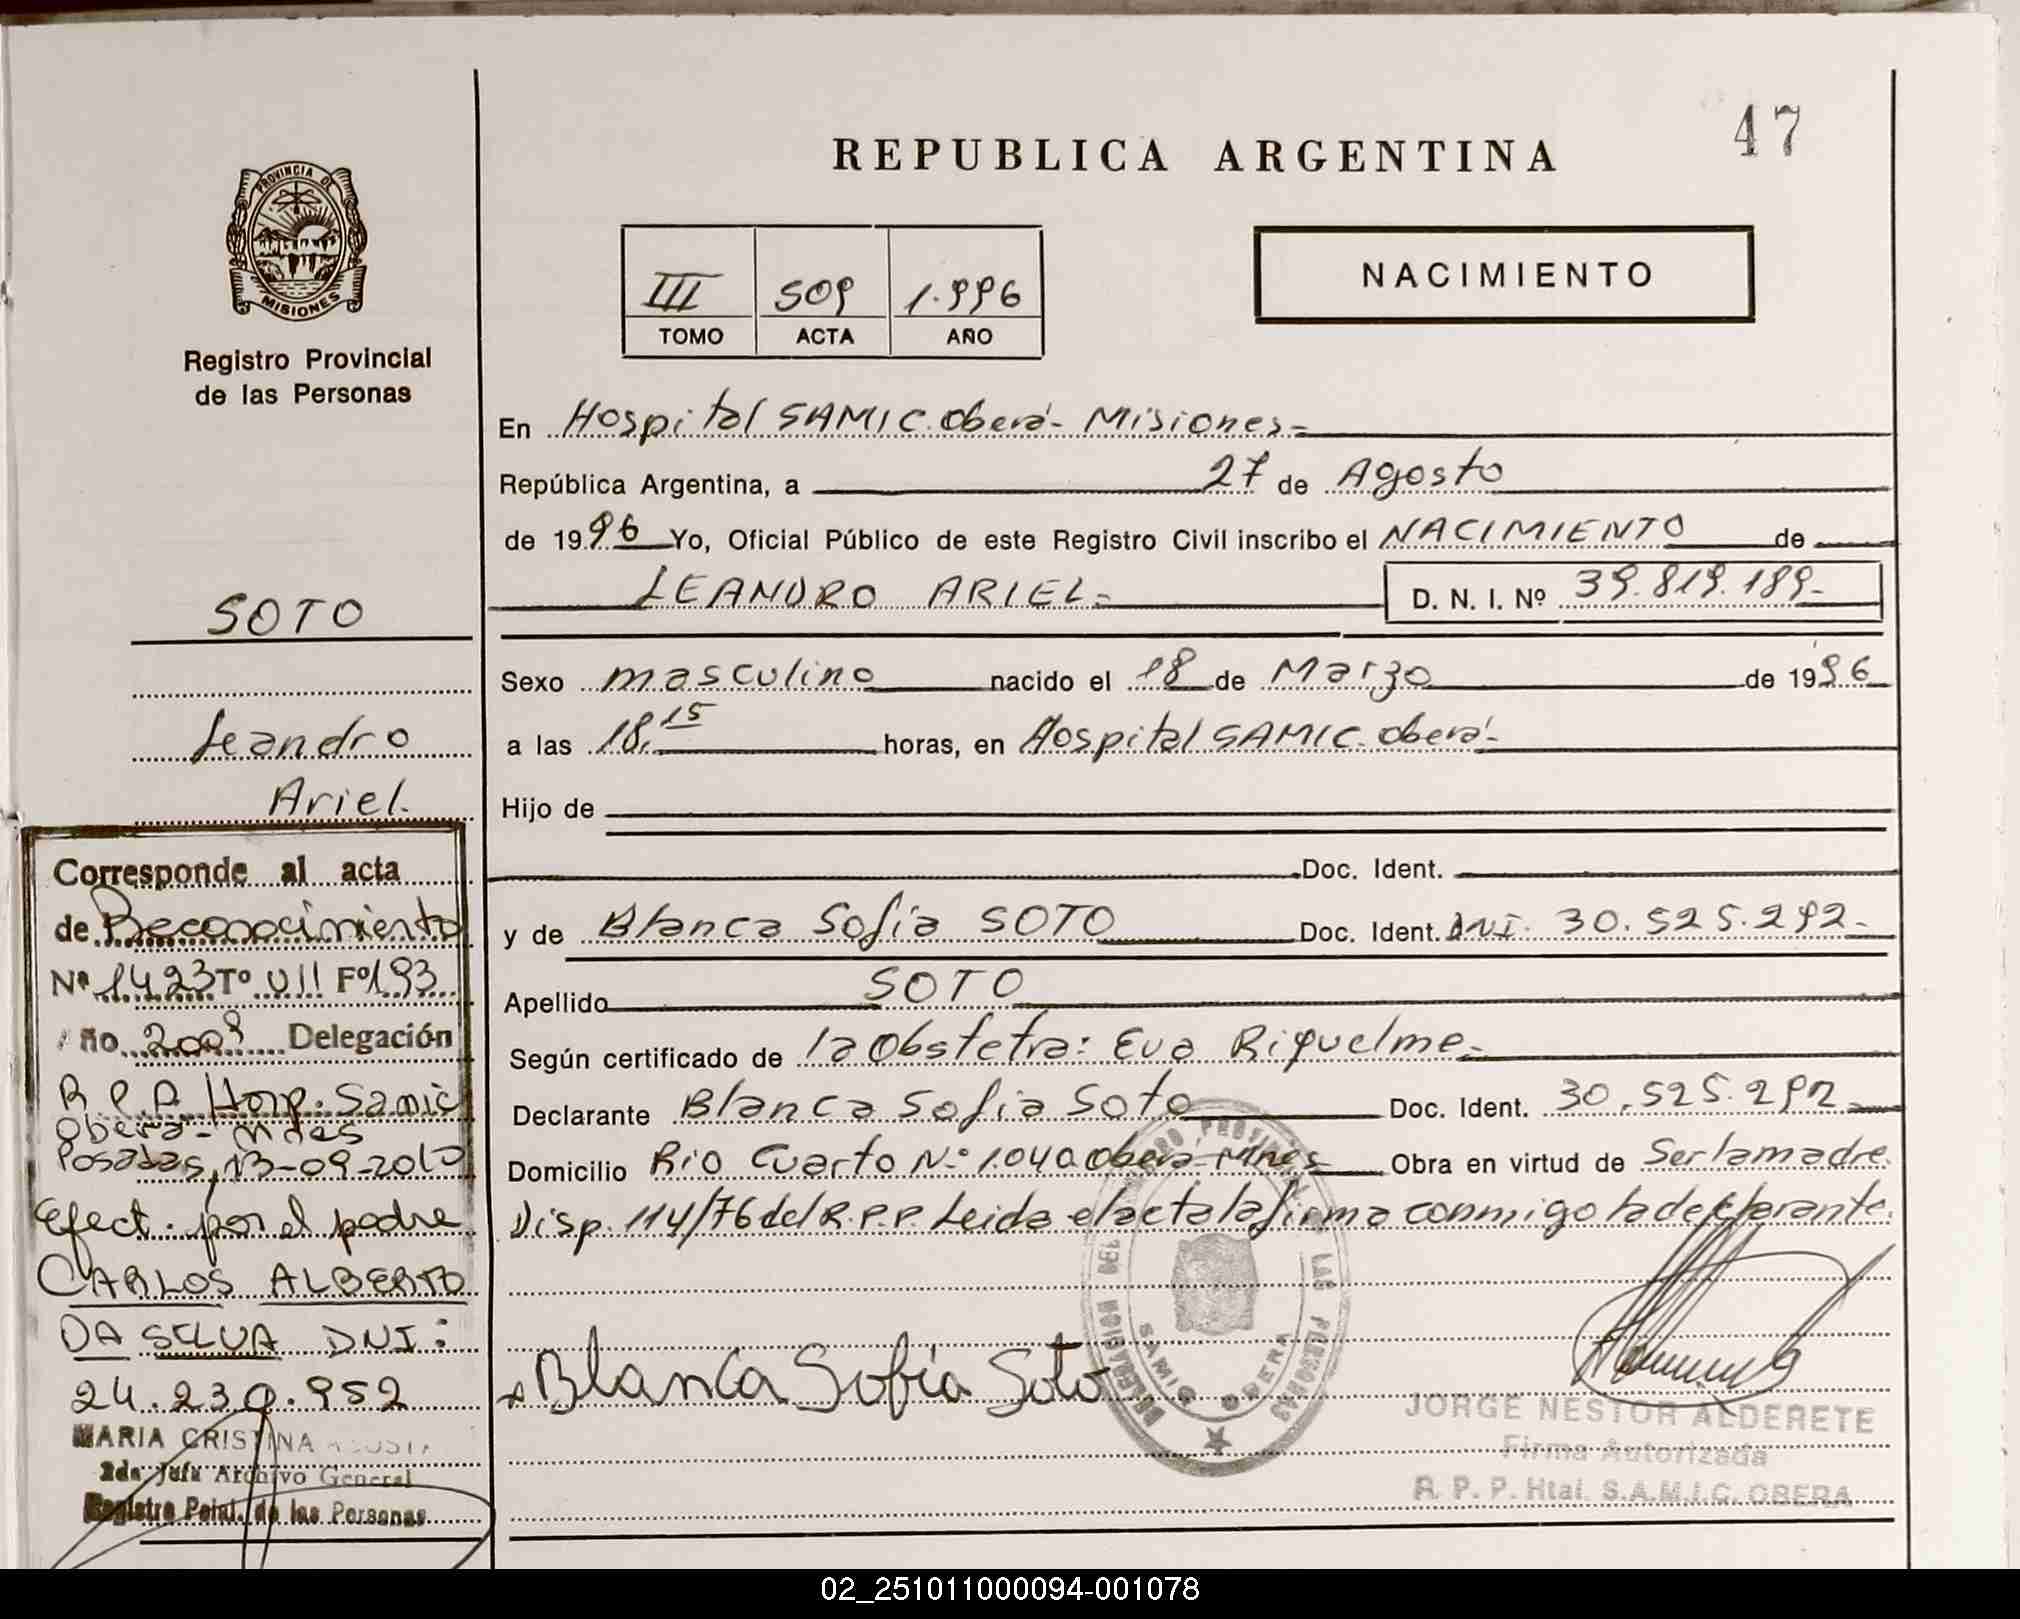 47
REPUBLICA ARGENTINA
PROVINCIA DE
MISIONES
Registro Provincial
de las Personas
III 509 1.996
TOMO ACTA AÑO
NACIMIENTO
En Hospital SAMIC. Oberá- Misiones-
República Argentina, a 27 de Agosto
de 1996 Yo, Oficial Público de este Registro Civil inscribo el NACIMIENTO de
LEANDRO ARIEL- D. N. I. Nº 39.819.189-
Sexo masculino nacido el 18 de Marzo de 1996
a las 18.15 horas, en Hospital SAMIC. Oberá-
Hijo de
Doc. Ident.
y de Blanca Sofia SOTO Doc. Ident. DNI. 30.525.292-
Apellido SOTO
Según certificado de la Obstetra: Eva Riquelme-
Declarante Blanca Sofia Soto Doc. Ident. 30.525.292-
Domicilio Rio Cuarto N.º 1.040 Oberá- Mnes- Obra en virtud de Ser la madre.
Disp. 114/76 del R.P.P. Leida el acta la firma conmigo la declarante.
Blanca Sofía Soto
DELEGACION DEL REGISTRO PROVINCIAL DE LAS PERSONAS
SAMIC OBERA
JORGE NESTOR ALDERETE
Firma Autorizada
R. P. P. Htal. S.A.M.I.C. OBERA
SOTO
Leandro
Ariel.
Corresponde al acta
de Reconocimiento
Nº 1423 Tº VII Fº 193
Año 2009 Delegación
R.P.P. Hosp. Samic
Oberá- Mnes
Posadas, 13-09-2010
Efect. por el padre
CARLOS ALBERTO
DA SELVA DNI:
24.230.952
MARIA CRISTINA ACOSTA
2da Jefa Archivo General
Registro Pcial. de las Personas
02_251011000094-001078